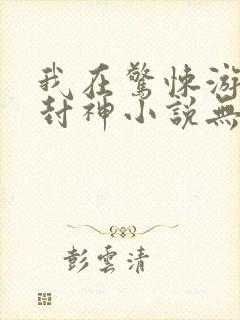 我在驚悚游
封神小説無
彭雲清